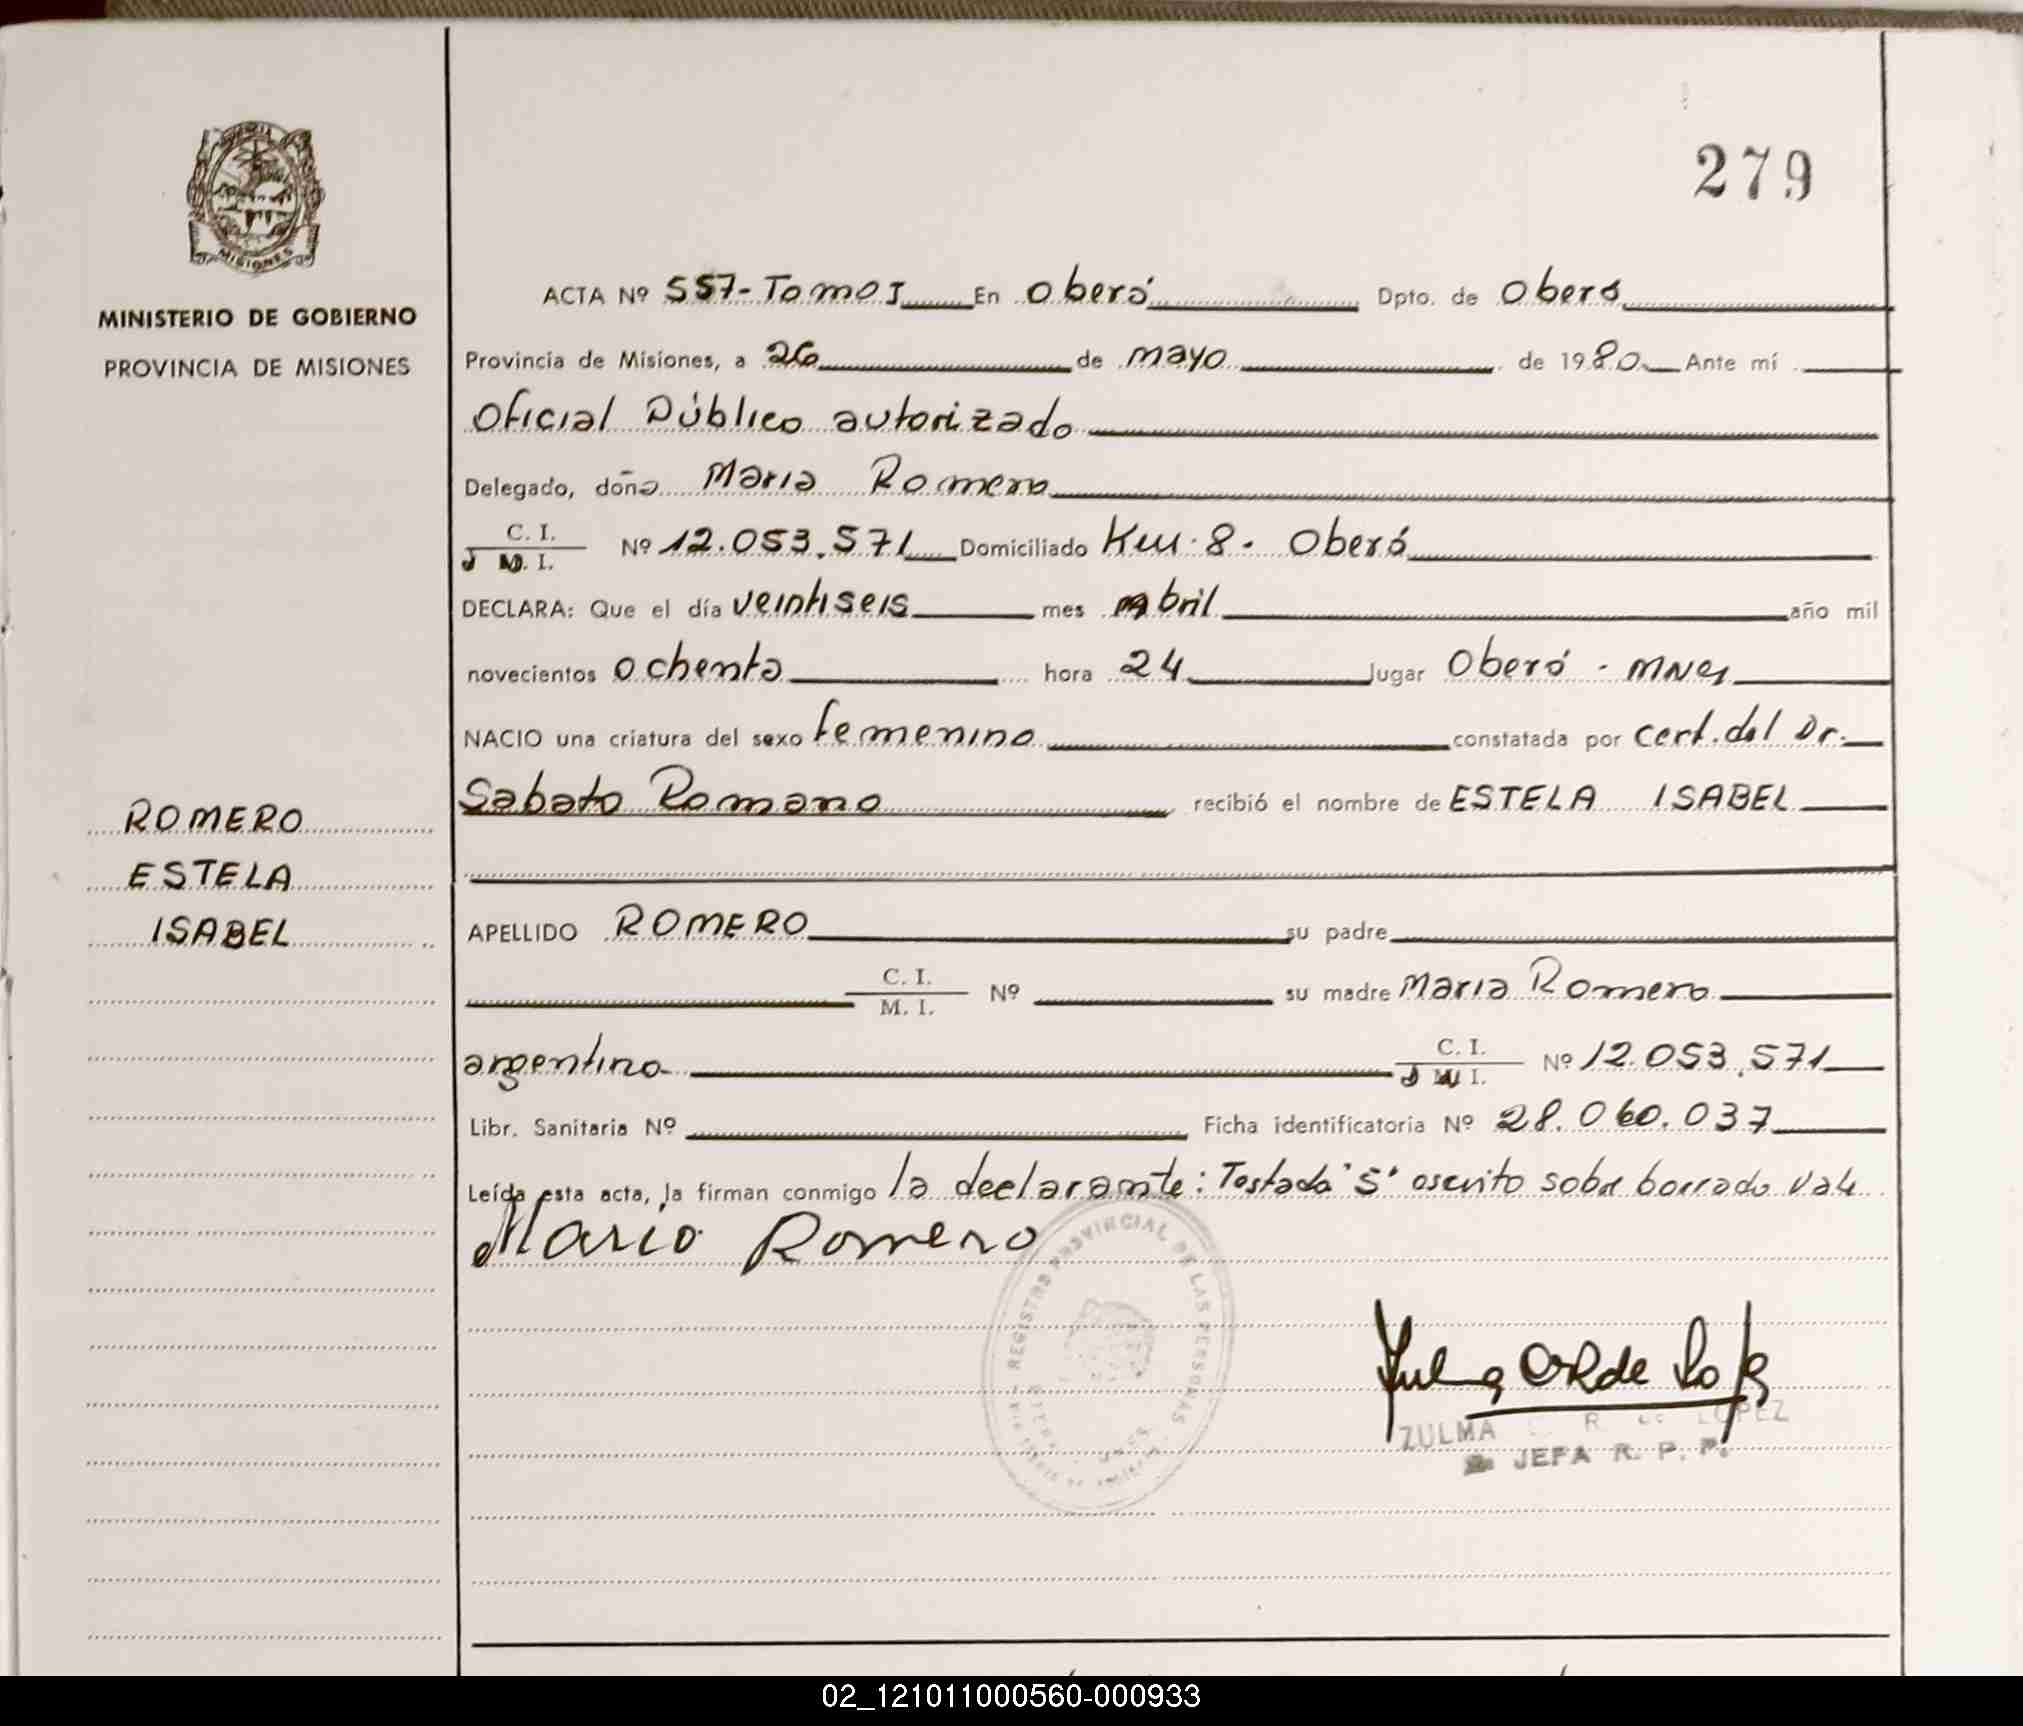 279
MISIONES
MINISTERIO DE GOBIERNO
PROVINCIA DE MISIONES
ACTA Nº 557-Tomo I En Oberá Dpto. de Oberá
Provincia de Misiones, a 26 de mayo de 1980 Ante mí
Oficial Público autorizado
Delegado, doña Maria Romero
C. I.
D M. I. Nº 12.053.571 Domiciliado Km. 8. Oberá
DECLARA: Que el día veintiseis mes abril año mil
novecientos ochenta hora 24 lugar Oberá - Mnes
NACIO una criatura del sexo femenino constatada por cert. del Dr.
Sabato Romano recibió el nombre de ESTELA ISABEL
ROMERO
ESTELA
ISABEL
APELLIDO ROMERO su padre
C. I.
M. I. Nº su madre Maria Romero
argentina C. I.
D M. I. Nº 12.053.571
Libr. Sanitaria Nº Ficha identificatoria Nº 28.060.037
Leída esta acta, la firman conmigo la declarante: Testada "S" escrito sobre borrado vale
Maria Romero
REGISTRO PROVINCIAL DE LAS PERSONAS
ZULMA R. de LOPEZ
JEFA R. P. P.
02_121011000560-000933